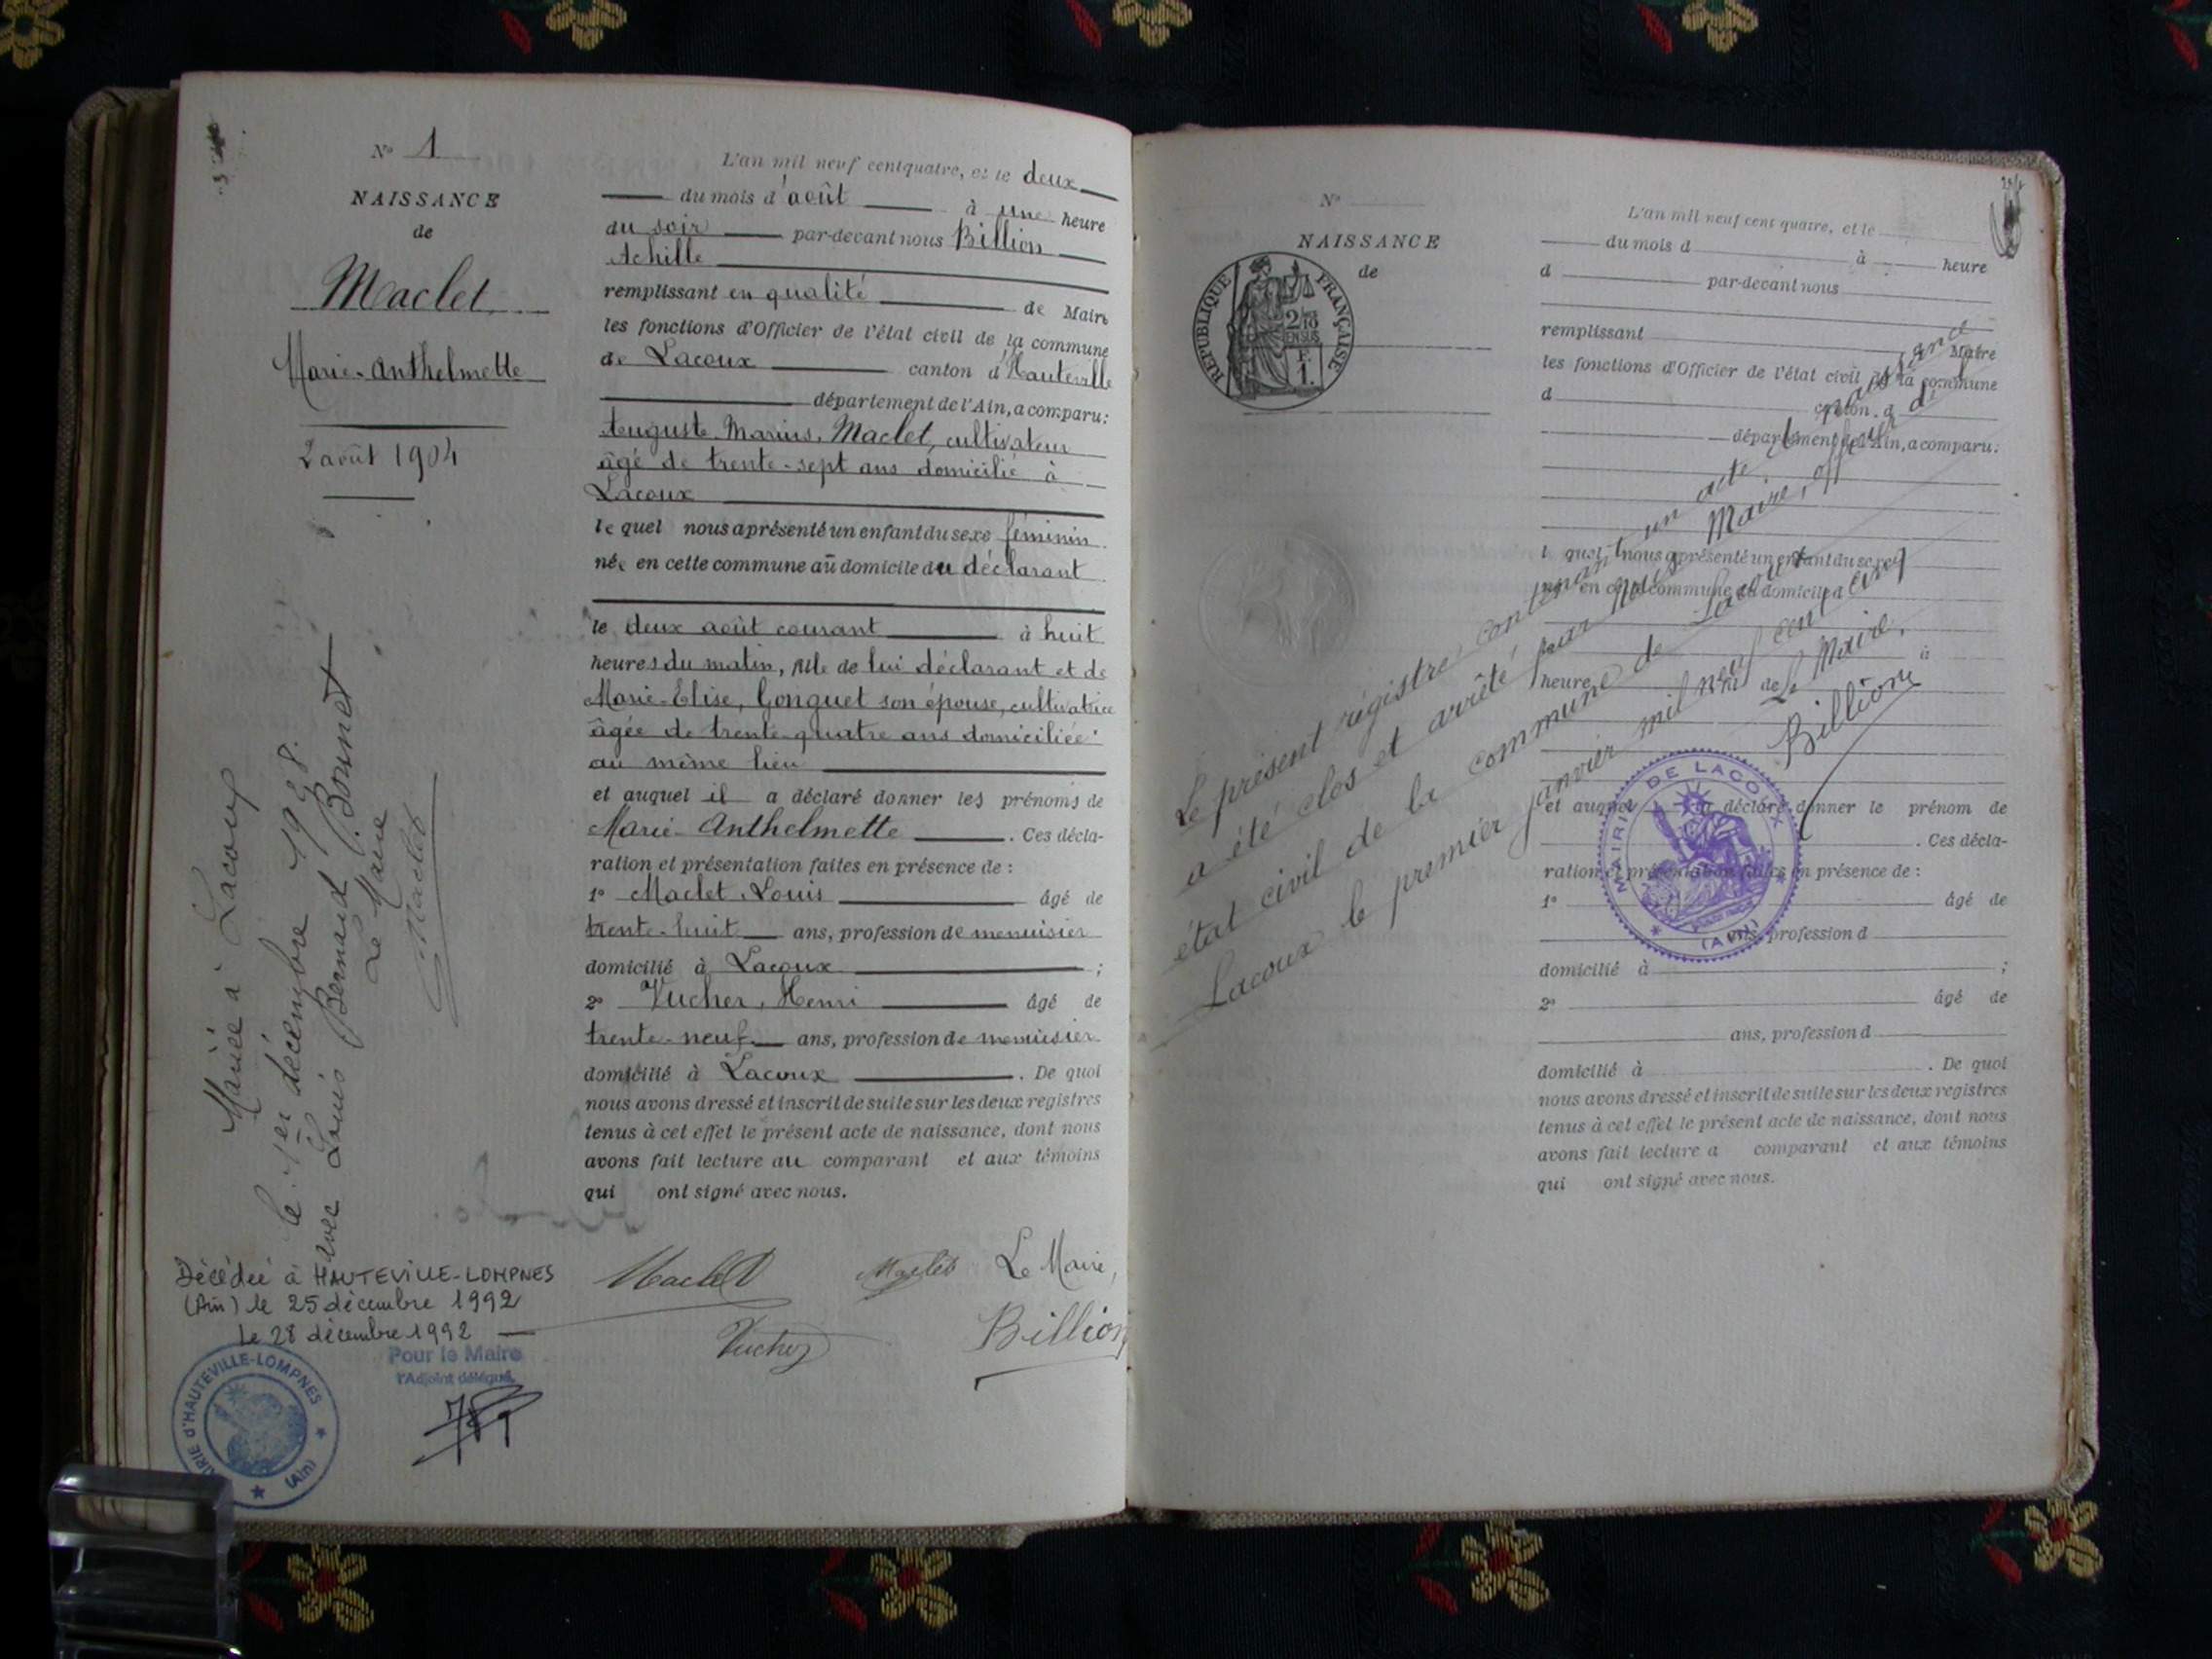 N° 1
NAISSANCE
de
Maclet
Marie-Anthelmette
2 août 1904
Mariée à Lacoux
le 1er décembre 1928.
avec Louis Bernard Bonnet
Le Maire
Maclet
Décédée à HAUTEVILLE-LOMPNES
(Ain) le 25 décembre 1992
Le 28 décembre 1992
Pour le Maire
l'Adjoint délégué,
MAIRIE d'HAUTEVILLE-LOMPNES
(Ain)
L'an mil neuf cent quatre, et le deux
du mois d'août à une heure
du soir par-devant nous Billion
Achille
remplissant en qualité de Maire
les fonctions d'Officier de l'état civil de la commune
de Lacoux canton d'Hauteville
département de l'Ain, a comparu:
Auguste Marius, Maclet, cultivateur
âgé de trente-sept ans domicilié à
Lacoux
lequel nous a présenté un enfant du sexe féminin
née en cette commune au domicile du déclarant
le deux août courant à huit
heures du matin, fille de lui déclarant et de
Marie-Elise, Gonguet son épouse, cultivatrice
âgée de trente-quatre ans domiciliée
au même lieu
et auquel il a déclaré donner les prénoms de
Marie-Anthelmette . Ces décla-
ration et présentation faites en présence de :
1° Maclet Louis âgé de
trente-huit ans, profession de menuisier
domicilié à Lacoux ;
2° Vucher, Henri âgé de
trente-neuf ans, profession de menuisier
domicilié à Lacoux . De quoi
nous avons dressé et inscrit de suite sur les deux registres
tenus à cet effet le présent acte de naissance, dont nous
avons fait lecture au comparant et aux témoins
qui ont signé avec nous.
Maclet Maclet Le Maire,
Vucher Billion
N°
NAISSANCE
de
RÉPUBLIQUE FRANÇAISE
2/10
EN SUS
F.
1.
L'an mil neuf cent quatre, et le
du mois d à heure
d par-devant nous
remplissant Maire
les fonctions d'Officier de l'état civil de la commune
d canton d
département de l'Ain, a comparu:
l quel nous a présenté un enfant du sexe
né en cette commune au domicile d
à
heure de
et auquel a déclaré donner le prénom de
. Ces décla-
ration et présentation faites en présence de :
1° âgé de
ans, profession d
domicilié à ;
2° âgé de
ans, profession d
domicilié à . De quoi
nous avons dressé et inscrit de suite sur les deux registres
tenus à cet effet le présent acte de naissance, dont nous
avons fait lecture a comparant et aux témoins
qui ont signé avec nous.
Le présent régistre contenant un acte de naissance
a été clos et arrêté par nous Maire, officier d'
état civil de la commune de Lacoux
Lacoux le premier janvier mil neuf cent cinq
Le Maire,
Billion
MAIRIE DE LACOUX
(AIN)